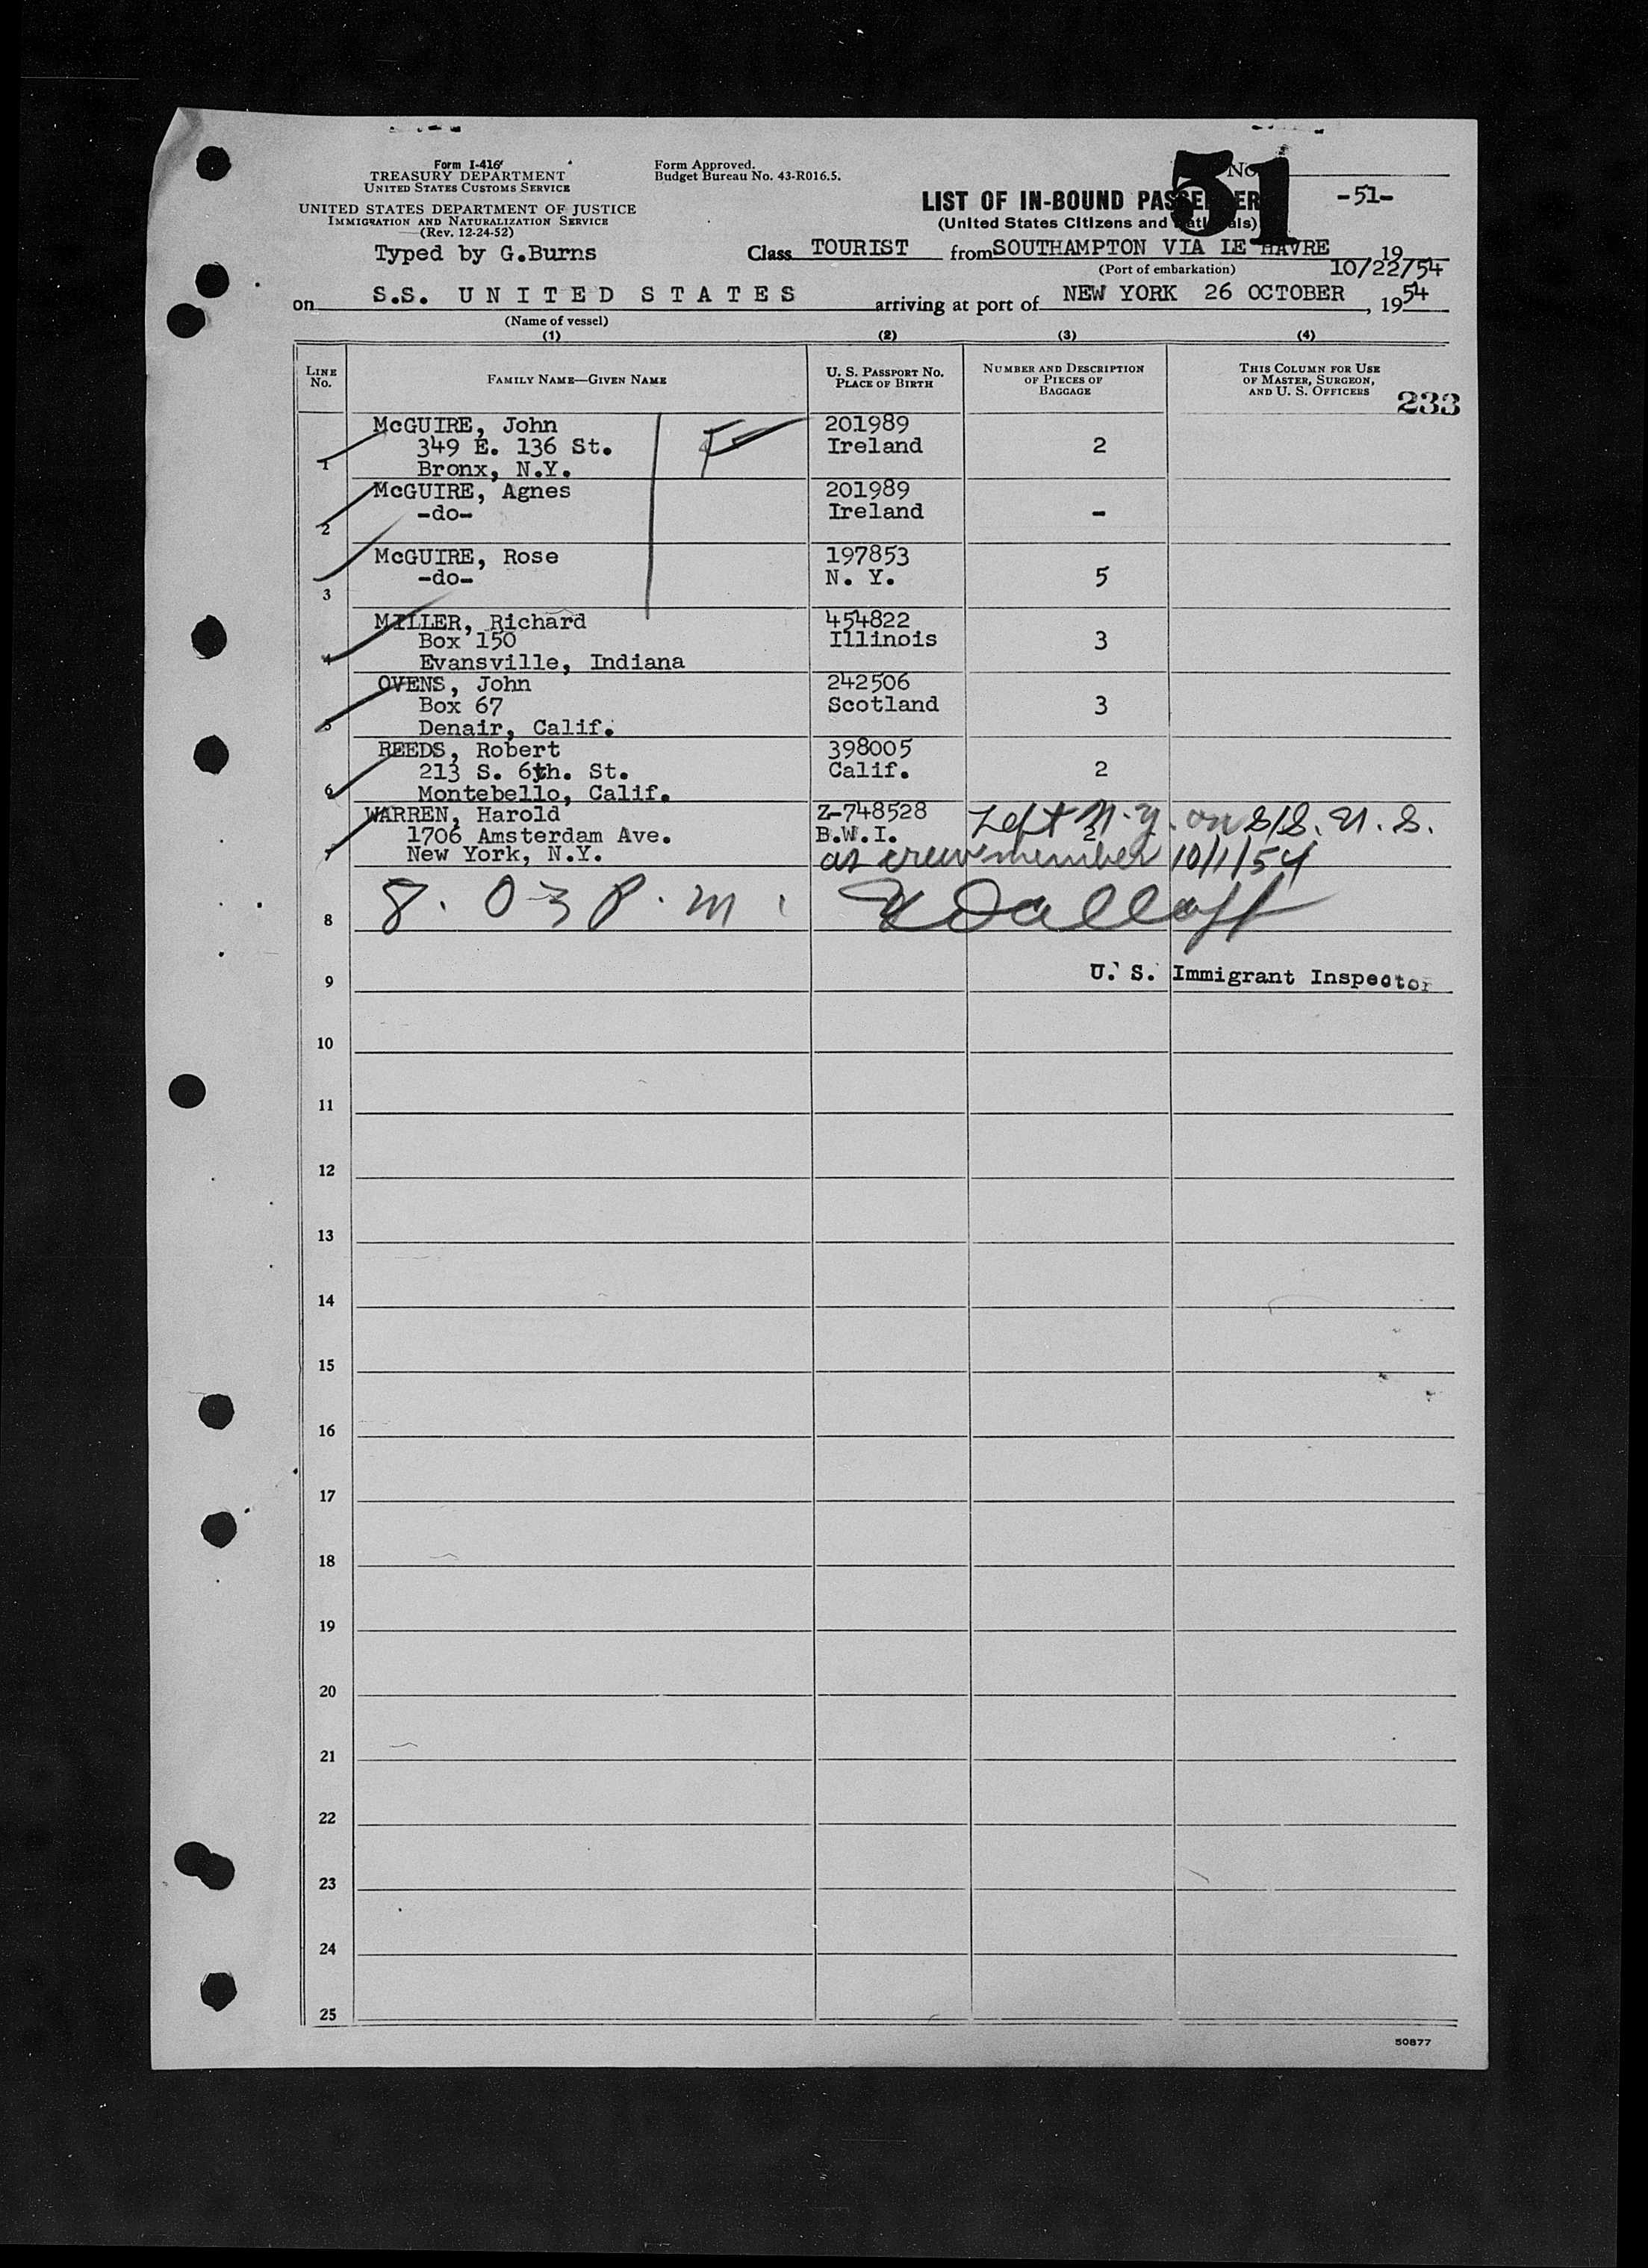 Form I-416
TREASURY DEPARTMENT
UNITED STATES CUSTOMS SERVICE
UNITED STATES DEPARTMENT OF JUSTICE
IMMIGRATION AND NATURALIZATION SERVICE
(Rev. 12-24-52)
Typed by G.Burns
Form Approved.
Budget Bureau No. 43-R016.5.
No.
51
-51-
LIST OF IN-BOUND PASSENGERS
(United States Citizens and Nationals)
Class TOURIST from SOUTHAMPTON VIA LE HAVRE 19
(Port of embarkation) 10/22/54
on S.S. U N I T E D S T A T E S arriving at port of NEW YORK 26 OCTOBER, 1954
(Name of vessel)
(1) (2) (3) (4)
LINE No. FAMILY NAME—GIVEN NAME U. S. PASSPORT NO. PLACE OF BIRTH NUMBER AND DESCRIPTION OF PIECES OF BAGGAGE THIS COLUMN FOR USE OF MASTER, SURGEON, AND U. S. OFFICERS
233
McGUIRE, John 201989
349 E. 136 St. Ireland 2
1 Bronx, N.Y.
McGUIRE, Agnes 201989
-do- Ireland -
2
McGUIRE, Rose 197853
-do- N. Y. 5
3
MILLER, Richard 454822
Box 150 Illinois 3
4 Evansville, Indiana
OVENS, John 242506
Box 67 Scotland 3
5 Denair, Calif.
REEDS, Robert 398005
213 S. 6th. St. Calif. 2
6 Montebello, Calif.
WARREN, Harold Z-748528 Left N.Y. on S/S. U.S.
1706 Amsterdam Ave. B.W.I. 2
7 New York, N.Y. as crew member 10/1/54
8 8.03 P.M.
9 U. S. Immigrant Inspector
10
11
12
13
14
15
16
17
18
19
20
21
22
23
24
25
50877